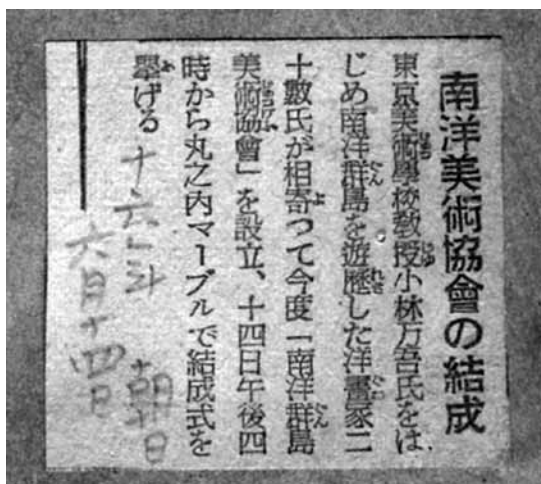 南洋美術協會の結成
東京美術學校敎授小林万吾氏をは
じめ南洋群島を遊歷した洋畫家二
十數氏が相寄つて今度「南洋群島
美術協會」を設立、十四日午後四
時から丸之内マーブルで結成式を
擧げる
十六年 朝日
六月十四日